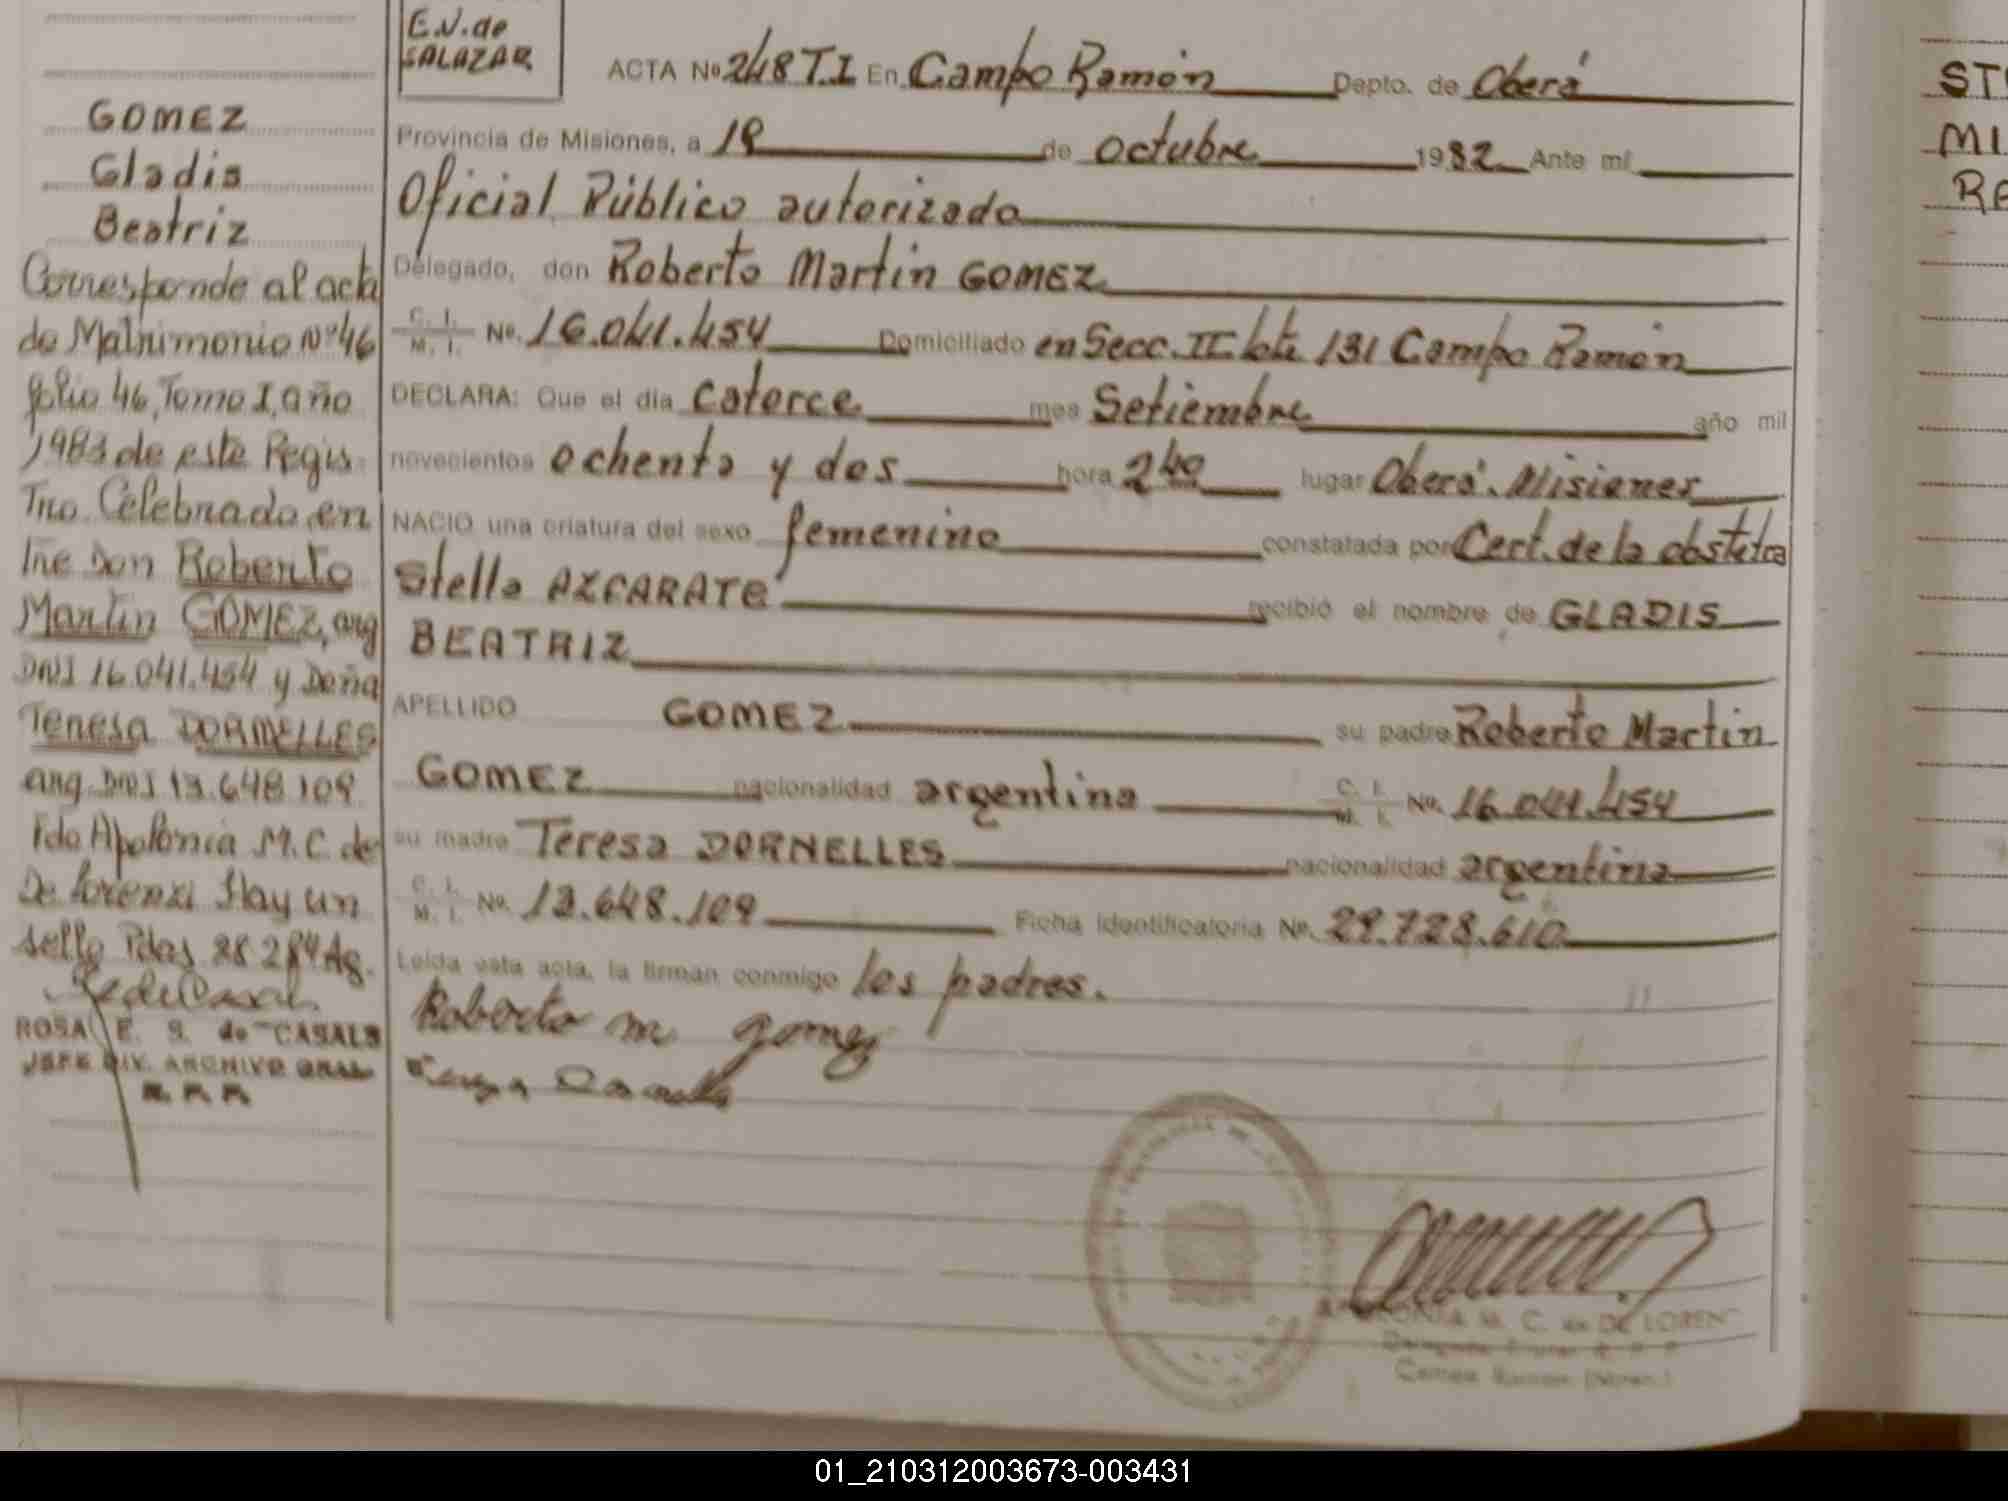 E.N. de
SALAZAR
ACTA Nº 248 T.I En Campo Ramón Depto. de Oberá
Provincia de Misiones, a 19 de octubre 1982 Ante mí
Oficial Público autorizado
Delegado, don Roberto Martin GOMEZ
C. I.
M. I. Nº. 16.041.454 Domiciliado en Secc. II lote 131 Campo Ramón
DECLARA: Que el día catorce mes Setiembre año mil
novecientos ochenta y dos hora 2 40 lugar Oberá. Misiones
NACIO una criatura del sexo femenino constatada por Cert. de la obstetra
Stella AZCARATE recibió el nombre de GLADIS
BEATRIZ
APELLIDO GOMEZ su padre Roberto Martin
GOMEZ nacionalidad argentina C. I.
M. I. Nº. 16.041.454
su madre Teresa DORNELLES nacionalidad argentina
C. I.
M. I. Nº. 13.648.109 Ficha Identificatoria Nº. 29.728.610
Leída esta acta, la firman conmigo los padres.
Roberto m gomez
GOMEZ
Gladis
Beatriz
Corresponde al acta
de Matrimonio Nº 46
folio 46, Tomo I, año
1983 de este Regis
tro Celebrado en
tre Don Roberto
Martin GOMEZ, arg
DNI 16.041.454 y Doña
Teresa DORNELLES
arg. DNI 13.648.109
Fdo Apolonia M. C. de
De Lorenzi Hay un
sello Pdas 28 2 84
ROSA E. S. de CASALS
JEFE DIV. ARCHIVO GRAL
R. P. P.
APOLONIA M. C. de DE LOREN
Campo Ramón (Mnes.)
ST
MI
RA
01_210312003673-003431